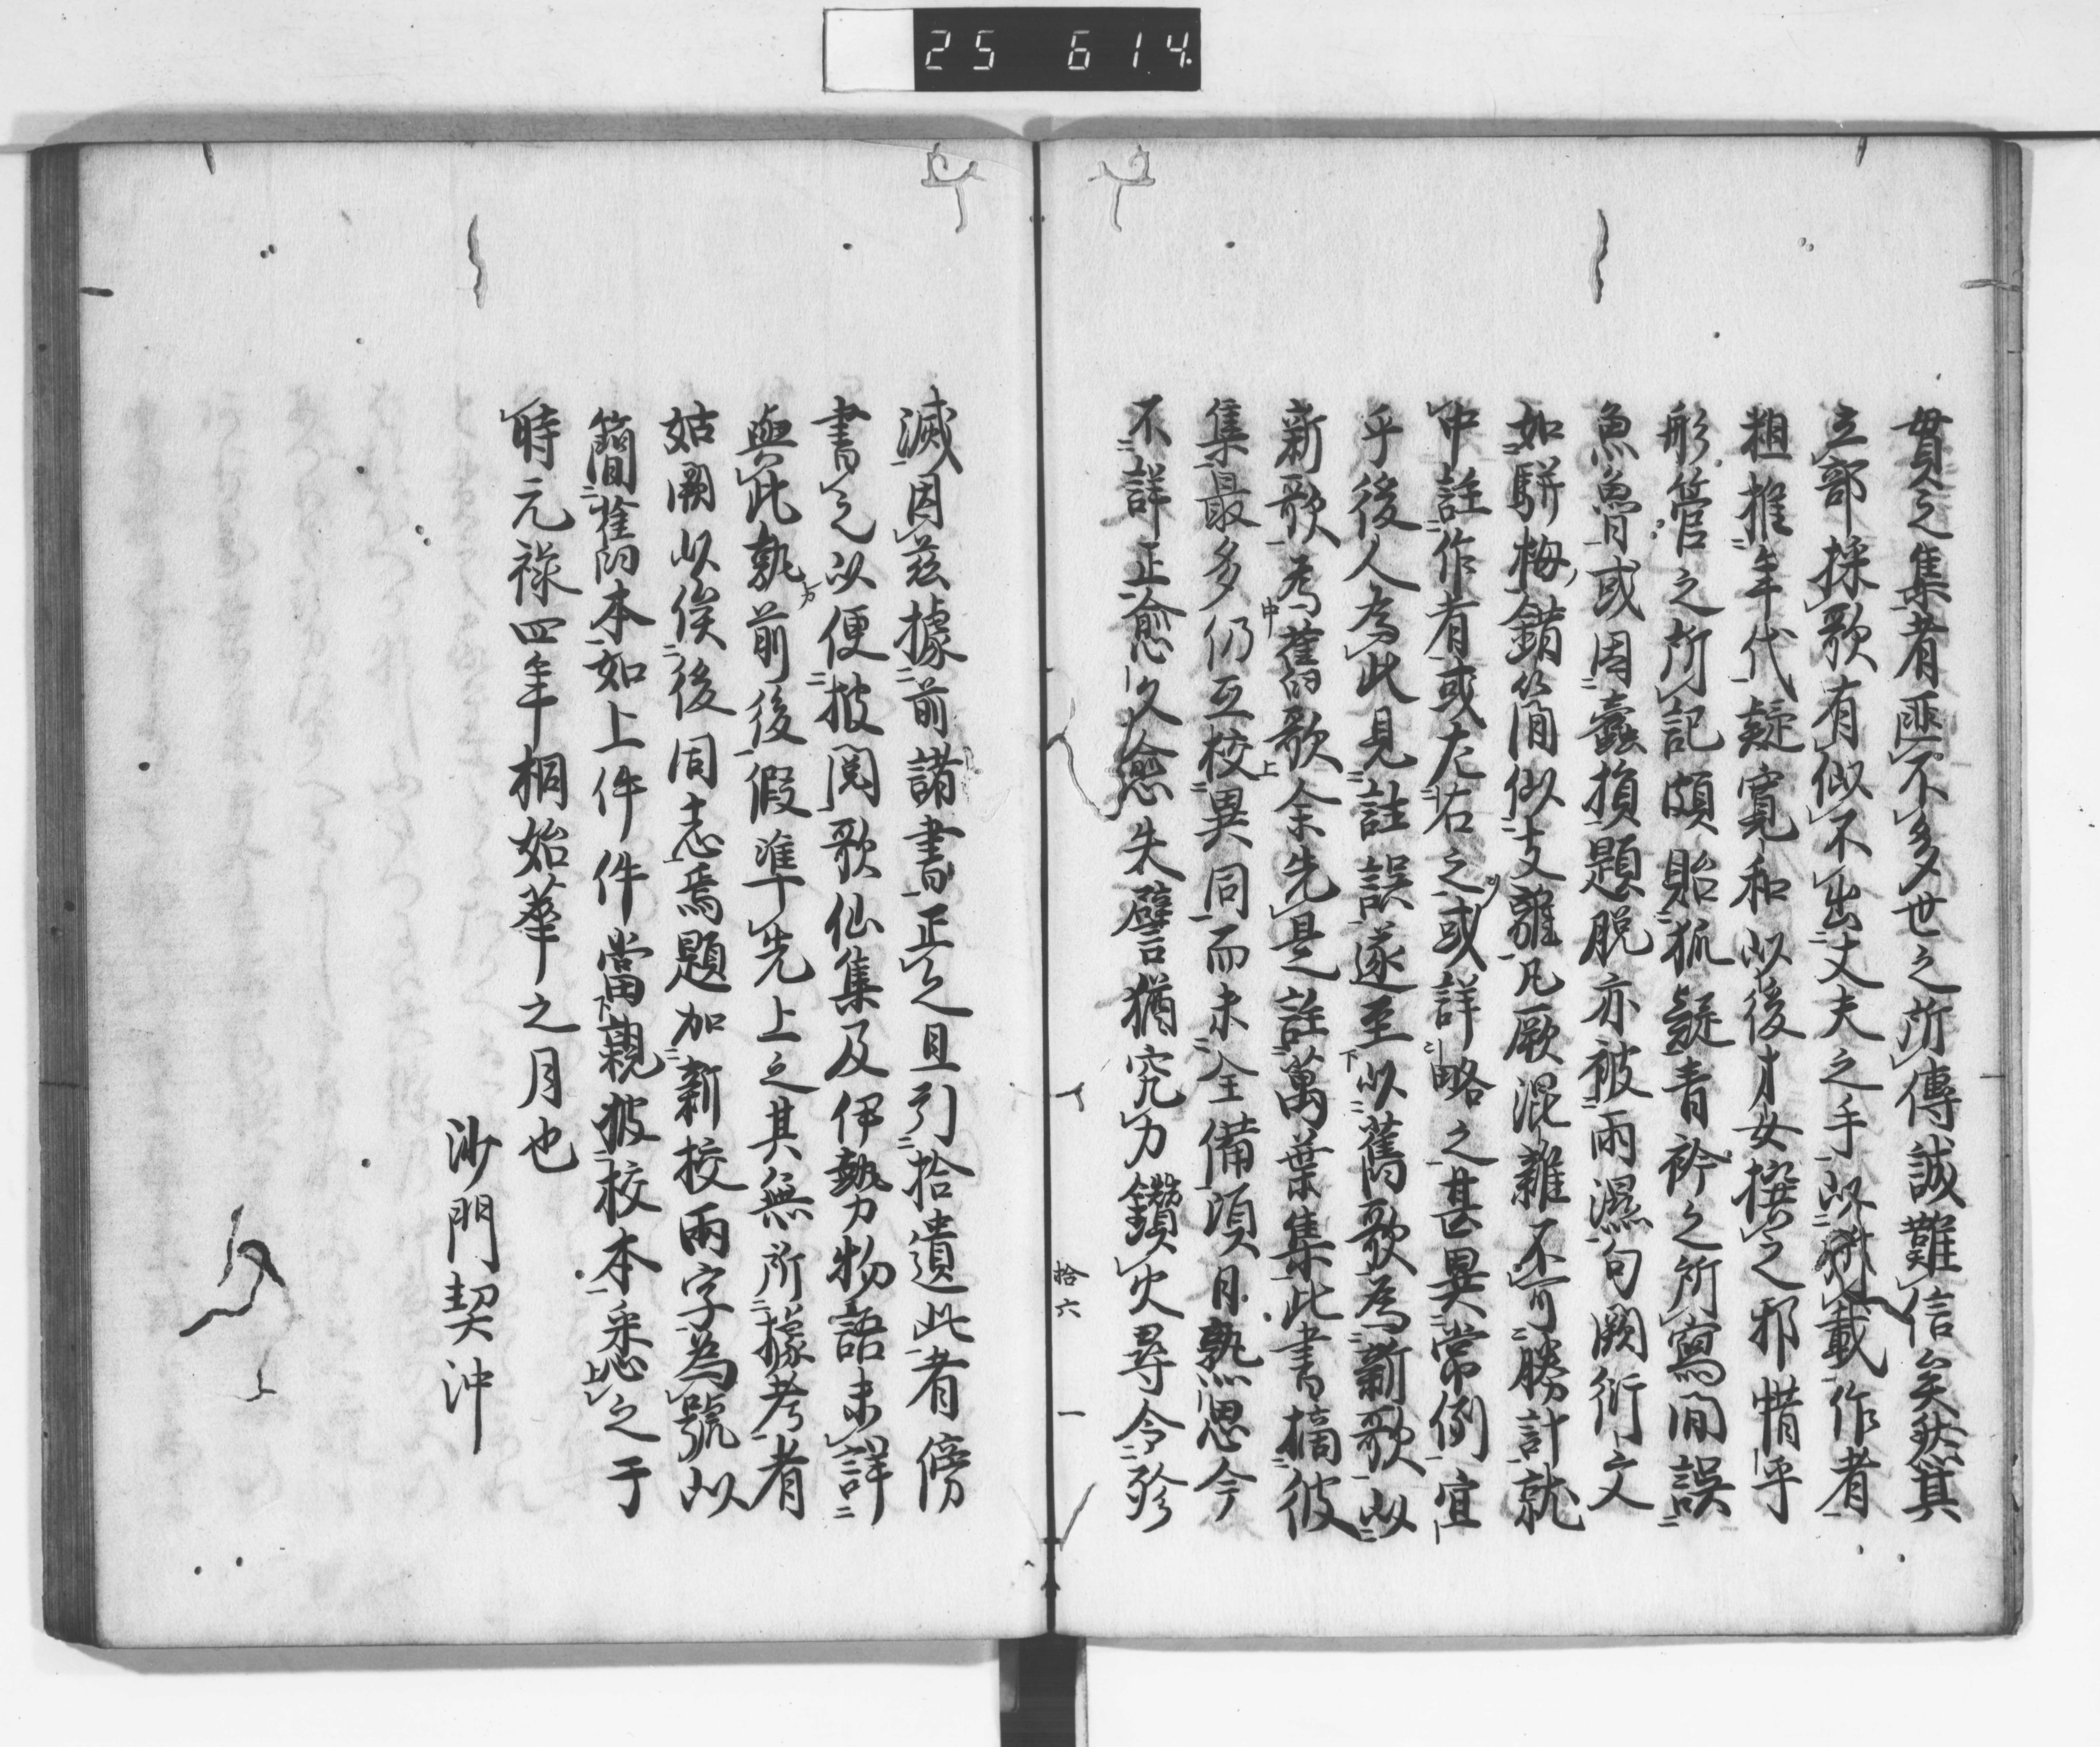 25 614.
貫之集者匪不多世之所傳誠難信矣然其
立部採歌有似不出丈夫之手以載作者
粗推年代疑寛和以後才女撰之邪惜乎
彤管之所記頗貽狐疑青衿之所寫間誤
魚魯或因蠹損題脱亦被雨濕句闕衍文
如駢梅錯簡似支離凡厥混雜不可勝計就
中註作者或左右之或詳略之甚異常例宜
乎後人為此見註誤遂至以舊歌為新歌以
新歌為舊歌余先是註萬葉集此書摘彼
集最多仍互校異同而未全備頃月熟思今
不詳正愈久愈失譬猶究力鑽火尋令殄
拾六
一
滅因茲據前諸書正之且引拾遺此者傍
書之以便披閲歌仙集及伊勢物語未詳
與此孰前後假準先上之其無所據考者
姑闕以俟後同志焉題加新校兩字為號以
簡舊本如上件件當親披校本采悉之于
時元祿四年桐始華之月也
沙門契沖